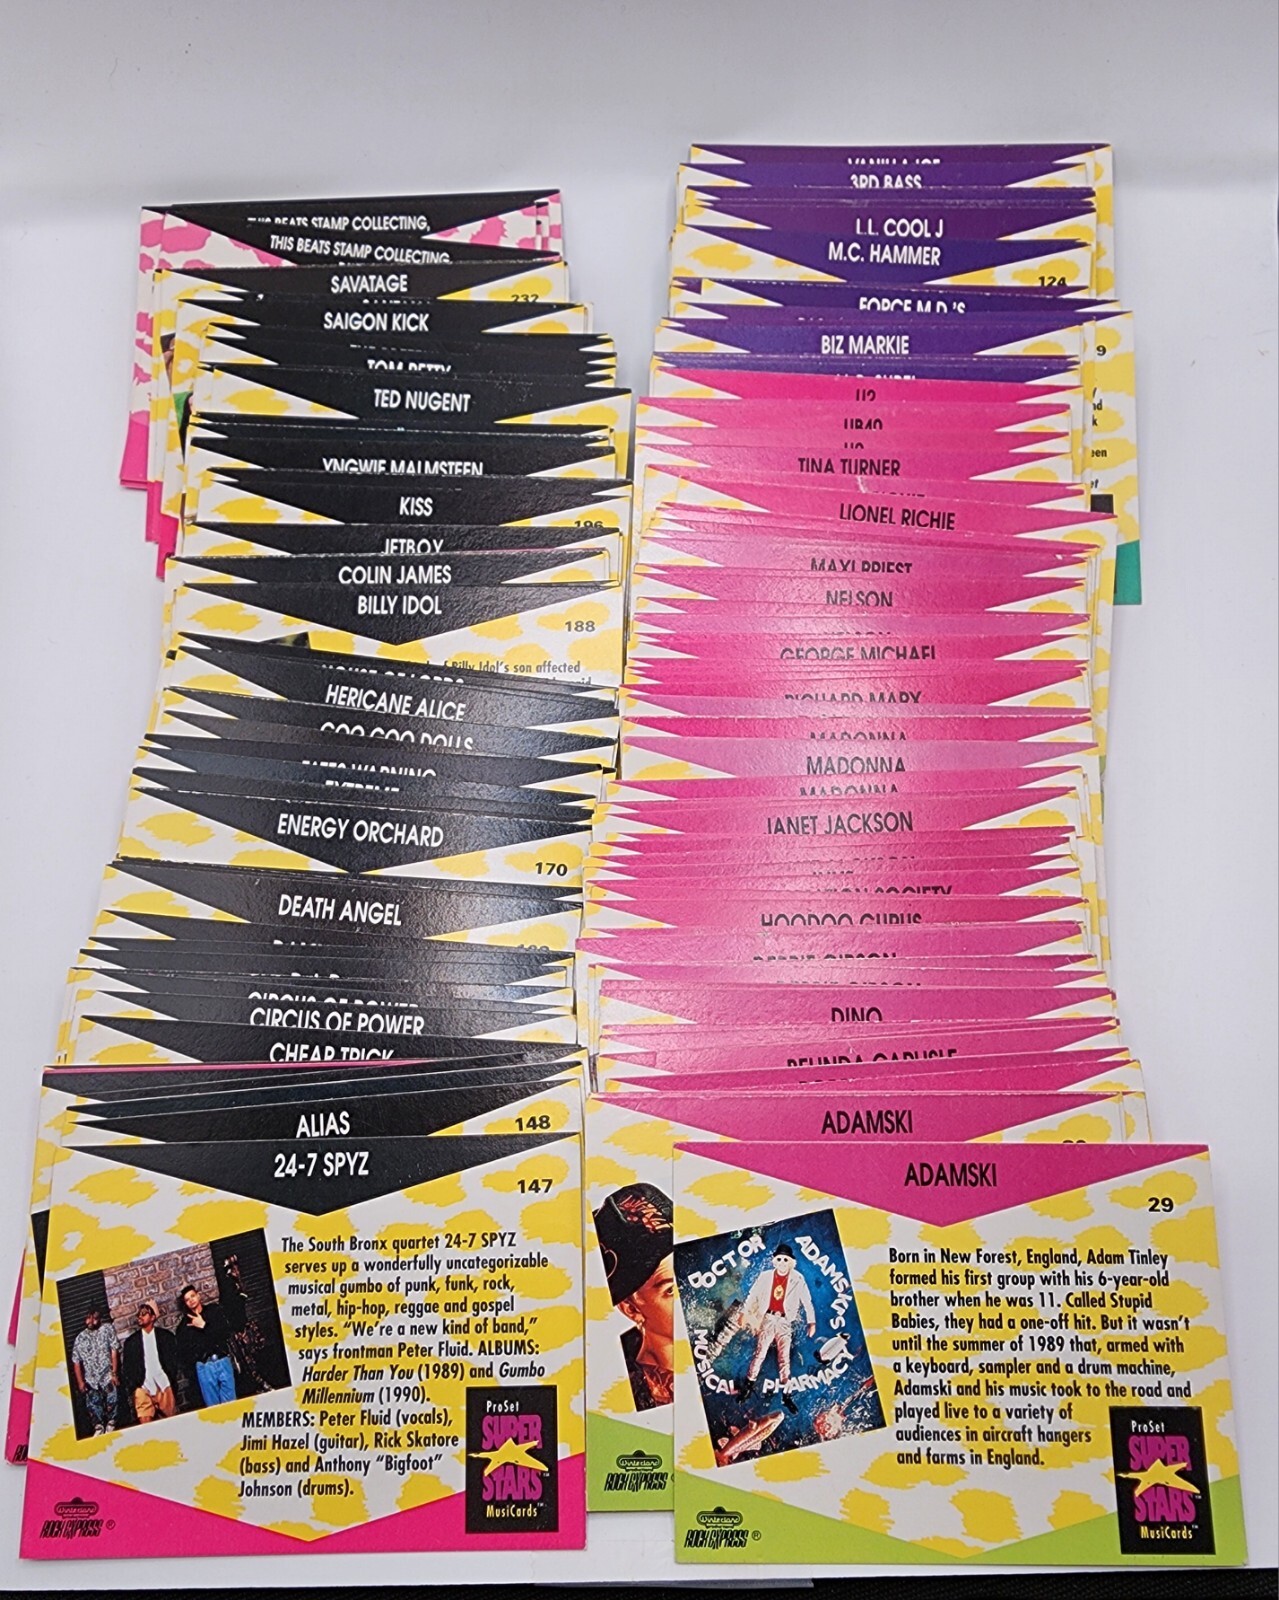 THIS BEATS STAMP COLLECTING,
THIS BEATS STAMP COLLECTING,
SAVATAGE
232
SAIGON KICK
TOM PETTY
TED NUGENT
YNGWIE MALMSTEEN
KISS
196
JETBOY
COLIN JAMES
BILLY IDOL
188
Billy Idol's son affected
HOUSE OF LORDS
HERICANE ALICE
GOO GOO DOLLS
FATES WARNING
EXTREME
ENERGY ORCHARD
170
DEATH ANGEL
CIRCUS OF POWER
CIRCUS OF POWER
CHEAP TRICK
ALIAS
148
24-7 SPYZ
147
The South Bronx quartet 24-7 SPYZ
serves up a wonderfully uncategorizable
musical gumbo of punk, funk, rock,
metal, hip-hop, reggae and gospel
styles. "We're a new kind of band,"
says frontman Peter Fluid. ALBUMS:
Harder Than You (1989) and Gumbo
Millennium (1990).
MEMBERS: Peter Fluid (vocals),
Jimi Hazel (guitar), Rick Skatore
(bass) and Anthony "Bigfoot"
Johnson (drums).
ProSet
SUPER
STARS™
MusiCards™
Winterland
ROCK EXPRESS ®
VANILLA ICE
3RD BASS
L.L. COOL J
M.C. HAMMER
124
FORCE M.D.'S
BIZ MARKIE
9
U2
UB40
U2
TINA TURNER
LIONEL RICHIE
MAXI PRIEST
NELSON
GEORGE MICHAEL
RICHARD MARX
MADONNA
MADONNA
MADONNA
JANET JACKSON
HOODOO GURUS
DEBBIE GIBSON
DEBBIE GIBSON
DINO
BELINDA CARLISLE
ADAMSKI
Winterland
ROCK EXPRESS
ADAMSKI
29
DOCTOR ADAMSKI'S
MUSICAL PHARMACY
Born in New Forest, England, Adam Tinley
formed his first group with his 6-year-old
brother when he was 11. Called Stupid
Babies, they had a one-off hit. But it wasn't
until the summer of 1989 that, armed with
a keyboard, sampler and a drum machine,
Adamski and his music took to the road and
played live to a variety of
audiences in aircraft hangers
and farms in England.
ProSet
SUPER
STARS™
MusiCards™
Winterland
ROCK EXPRESS ®